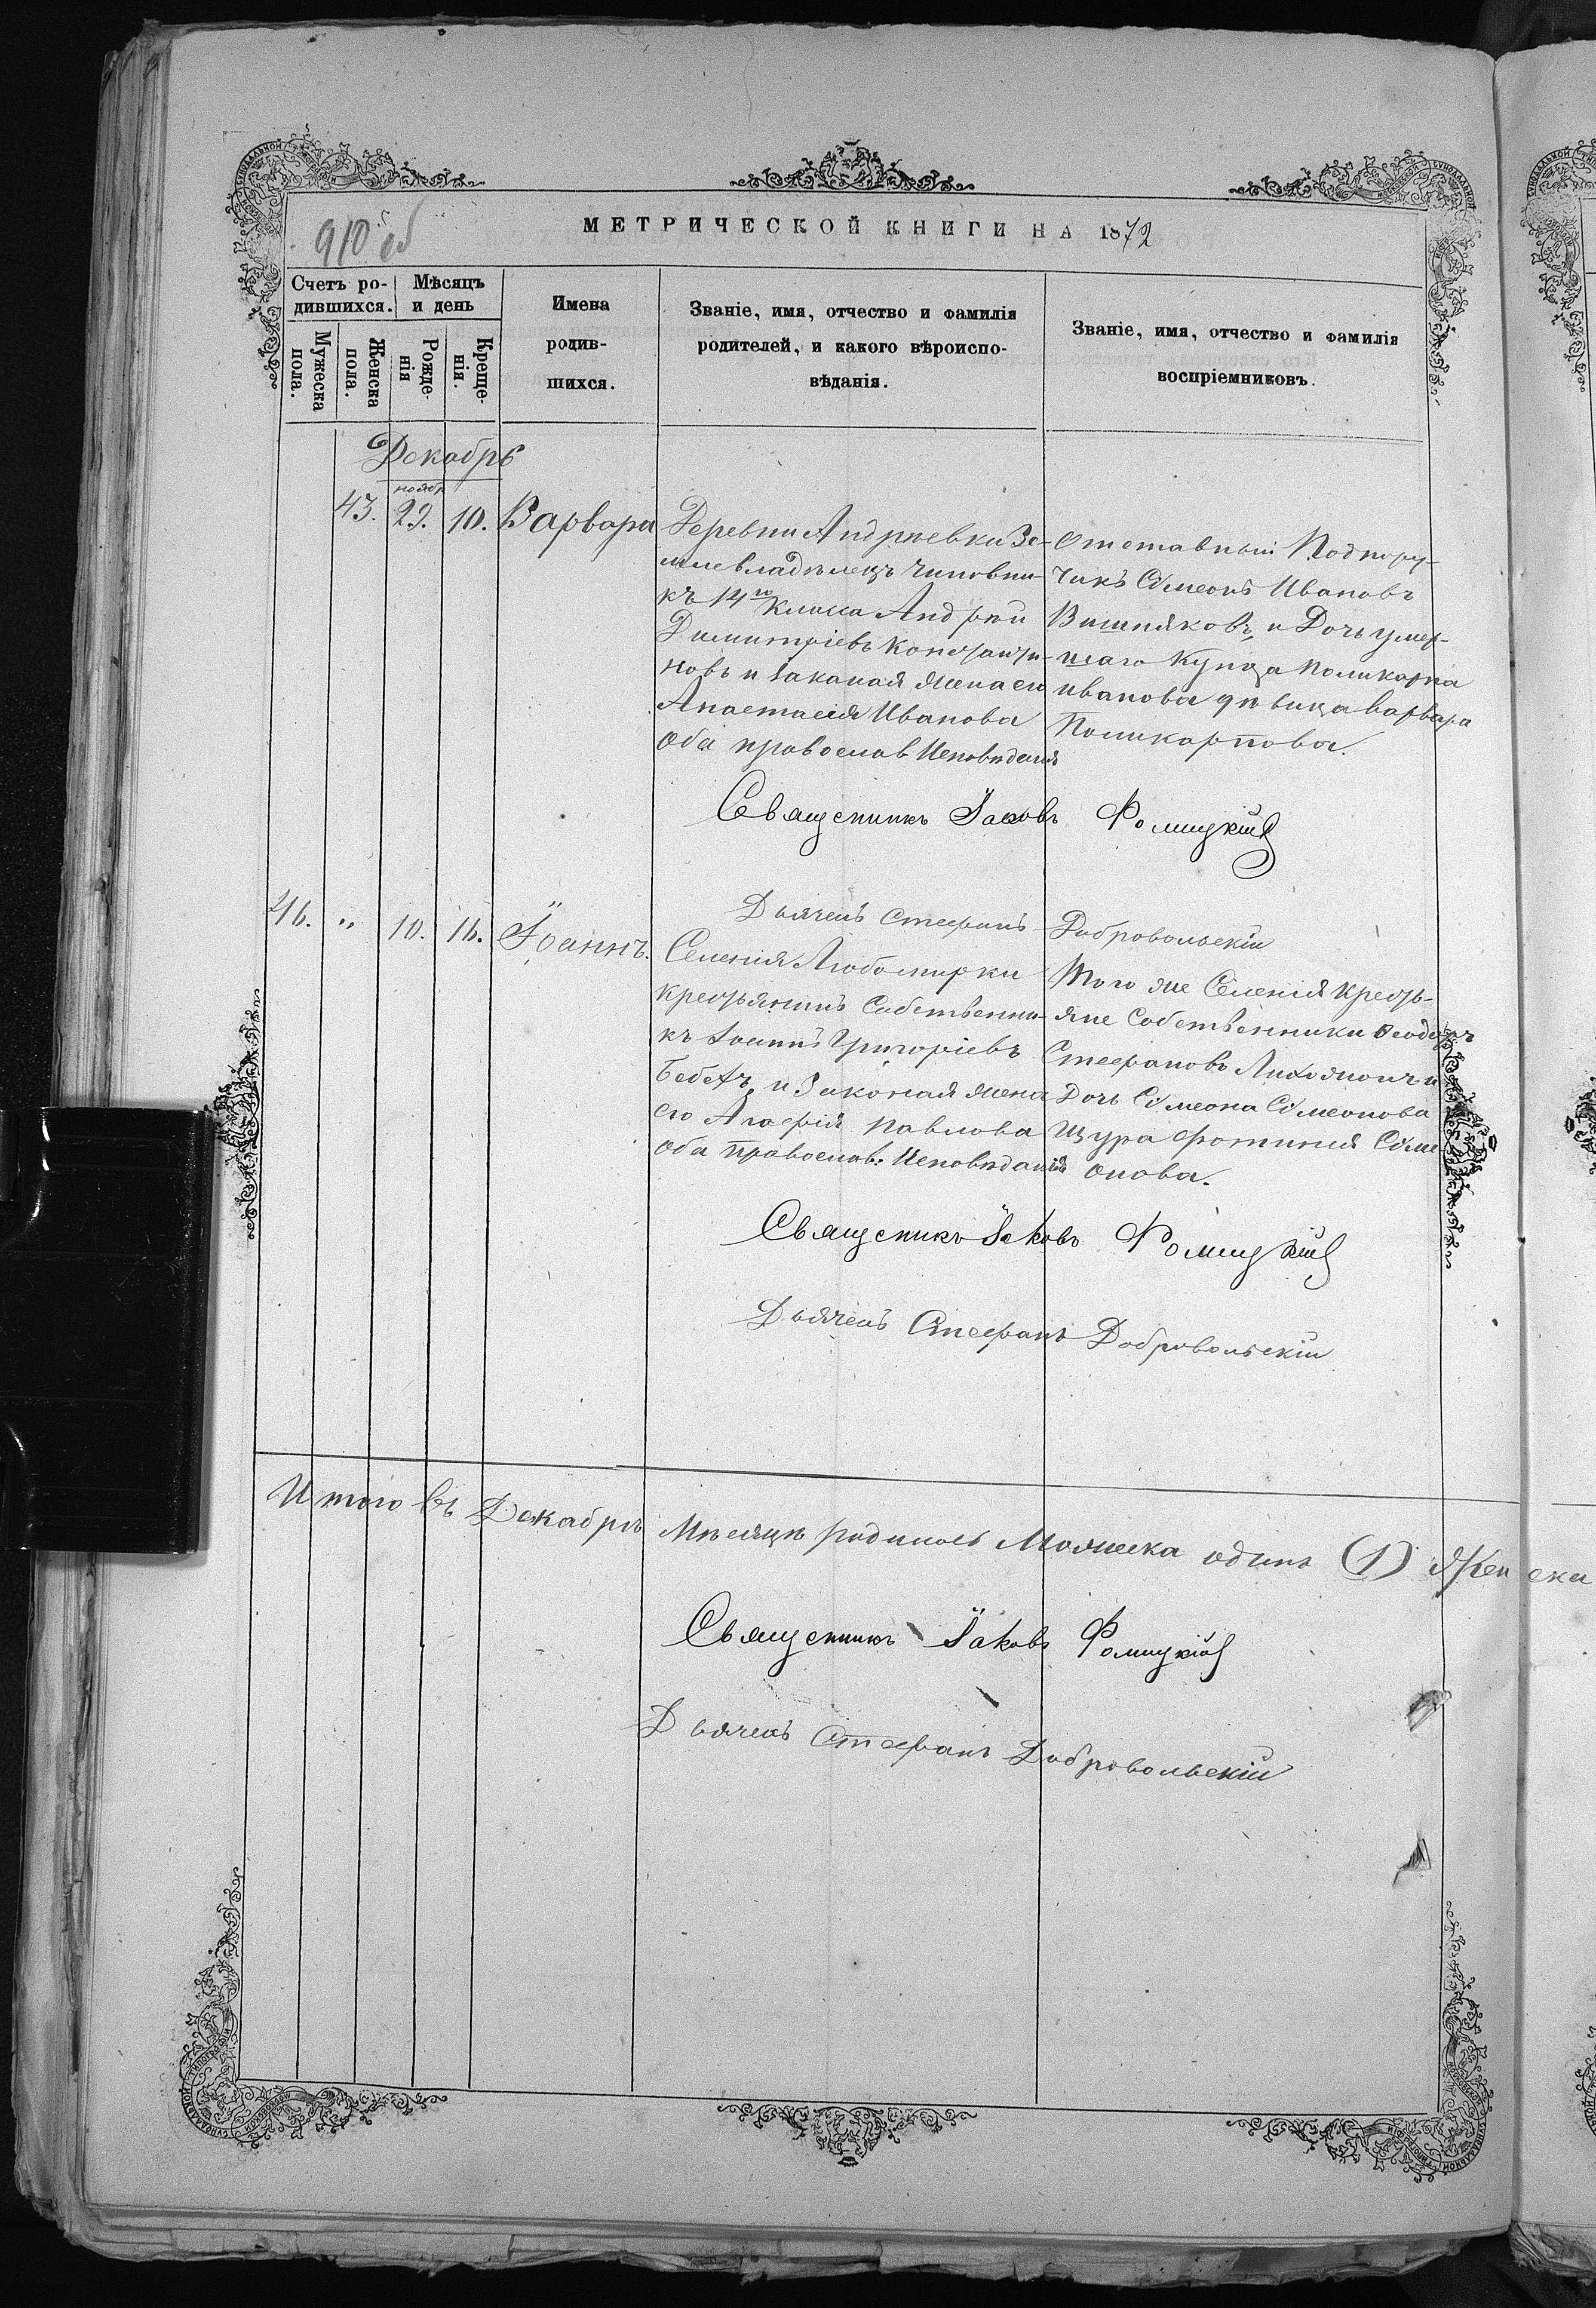 910 об
МЕТРИЧЕСКОЙ КНИГИ НА 1872
Счетъ ро-
дившихся.
Мѣсяцъ
и день
Мужеска
пола.
Женска
пола.
Рожде-
нія
Креще-
нія.
Имена
родив-
шихся.
Званіе, имя, отчество и фамилія
родителей, и какого вѣроиспо-
вѣданія.
Званіе, имя, отчество и фамилія
воспріемниковъ.
Декабрь
ноябр
43. 29. 10. Варвара
Деревни Андрѣевки Зе-
млевладѣлецъ Чиновни-
къ 14го Класса Андрѣй
Димитріевъ Константи-
новъ и Законая жена его
Анастасія Иванова
Оба православ Исповѣданія
Отставный Подпору-
чикъ Сѵмеонъ Ивановъ
Вишняковъ и Дочь умер-
шаго Купца Поликарпа
Иванова дѣвица Варвара
Поликарпова.
Священникъ Іаковъ Фомицкій
Дьячекъ Стефанъ Добровольскій
46. " 10. 16. Іоаннъ.
Селенія Любомирки
крестьянинъ Собственни-
къ Іоаннъ Григоріевъ
Бебехъ, и Законая жена
его Агафія Павлова
Оба православ: Исповѣданія
Того же Селенія Кресть-
яне Собственники Ѳеодоръ
Стефановъ Лихожонъ и
Дочь Сѵмеона Сѵмеонова
Щура Фотинія Сѵме-
онова.
Священикъ Іаковъ Фомицкій
Дьячекъ Стефанъ Добровольскій
Итого въ Декабрѣ Мѣсяцѣ родилось Можеска одинъ (1) Женска
Священникъ Іаковъ Фомицкій
Дьячекъ Стефанъ Добровольскій